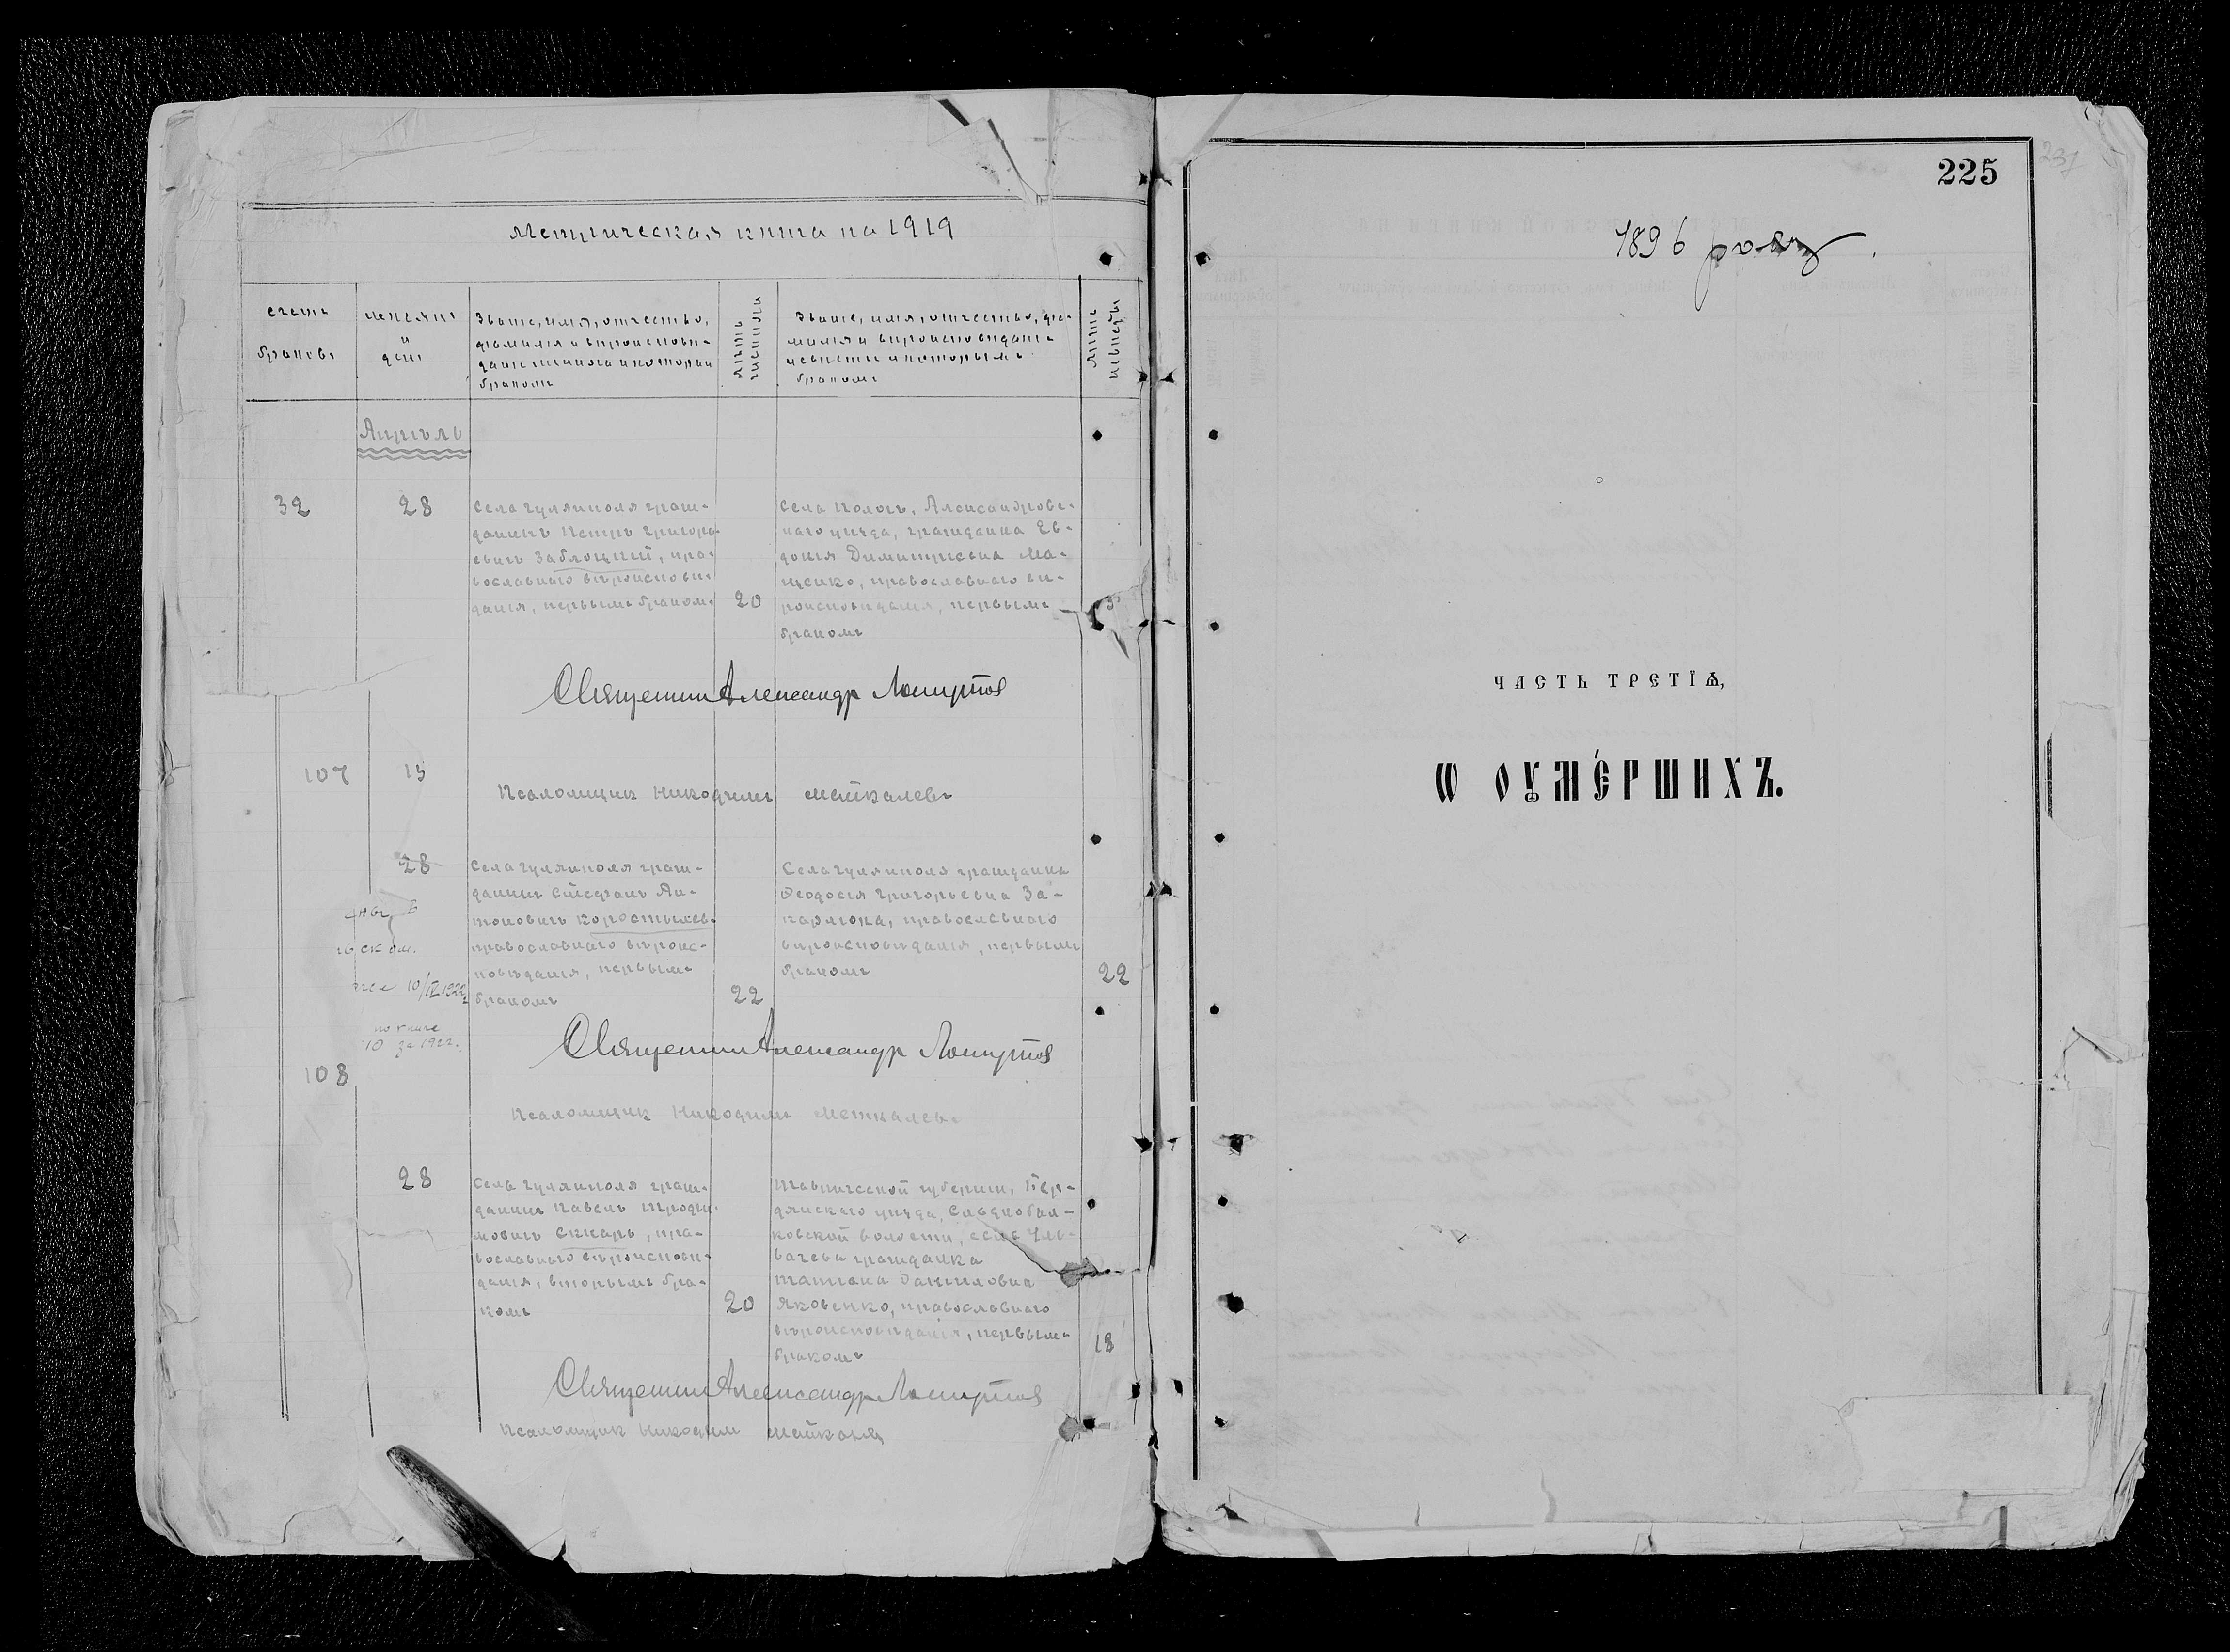 Метрическая книга на 1919
счетъ
браковъ
мѣсяцъ
и
день
Званіе, имя, отчество,
фамилія и вѣроисповѣ-
даніе жениха и которым
бракомъ
лѣта
жениха
Званіе, имя, отчество, фа-
милія и вѣроисповѣданіе
невѣсты и которымъ
бракомъ
лѣта
невѣсты
Апрѣль
32
28
Села Гуляйполя граж-
данинъ Петръ Григорь-
евичъ Заблоцкий, пра-
вославнаго вѣроисповѣ-
данія, первымъ браком.
20
Села Пологъ, Александровс-
каго уѣзда, гражданка Ев-
докія Димитріевна Ма-
щенко, православнаго вѣ-
роисповѣданія, первымъ
бракомъ
Священник Александр
107
15
Псаломщик Никодимъ
28
Села Гуляйполя граж-
данинъ Стефанъ Ан-
тоновичъ Коростылев.
православнаго вѣроис-
повѣданія, первымъ
бракомъ
22
Села Гуляйполя гражданка
Феодосія Григорьевна За-
православнаго
вѣроисповѣданія, первымъ
бракомъ
22
10/IV 1922
по книге
10 за 1922.
Священник Александр
108
Псаломщик Никодимъ
28
Села Гуляйполя граж-
данинъ Павелъ Трофи-
мовичъ пра-
вославнаго вѣроисповѣ-
данія, вторымъ бра-
комъ
20
Таврической губерніи, Бер-
дянскаго уѣзда,
ковской волости, села
гражданка
Татіана Даниловна
Яковенко, православнаго
вѣроисповѣданія, первымъ
бракомъ
18
Священник Александр
Псаломщик Никодим
225
237
1896 року.
ЧАСТЬ ТРЕТІѦ,
Ѡ ОУМЕ́РШИХЪ.